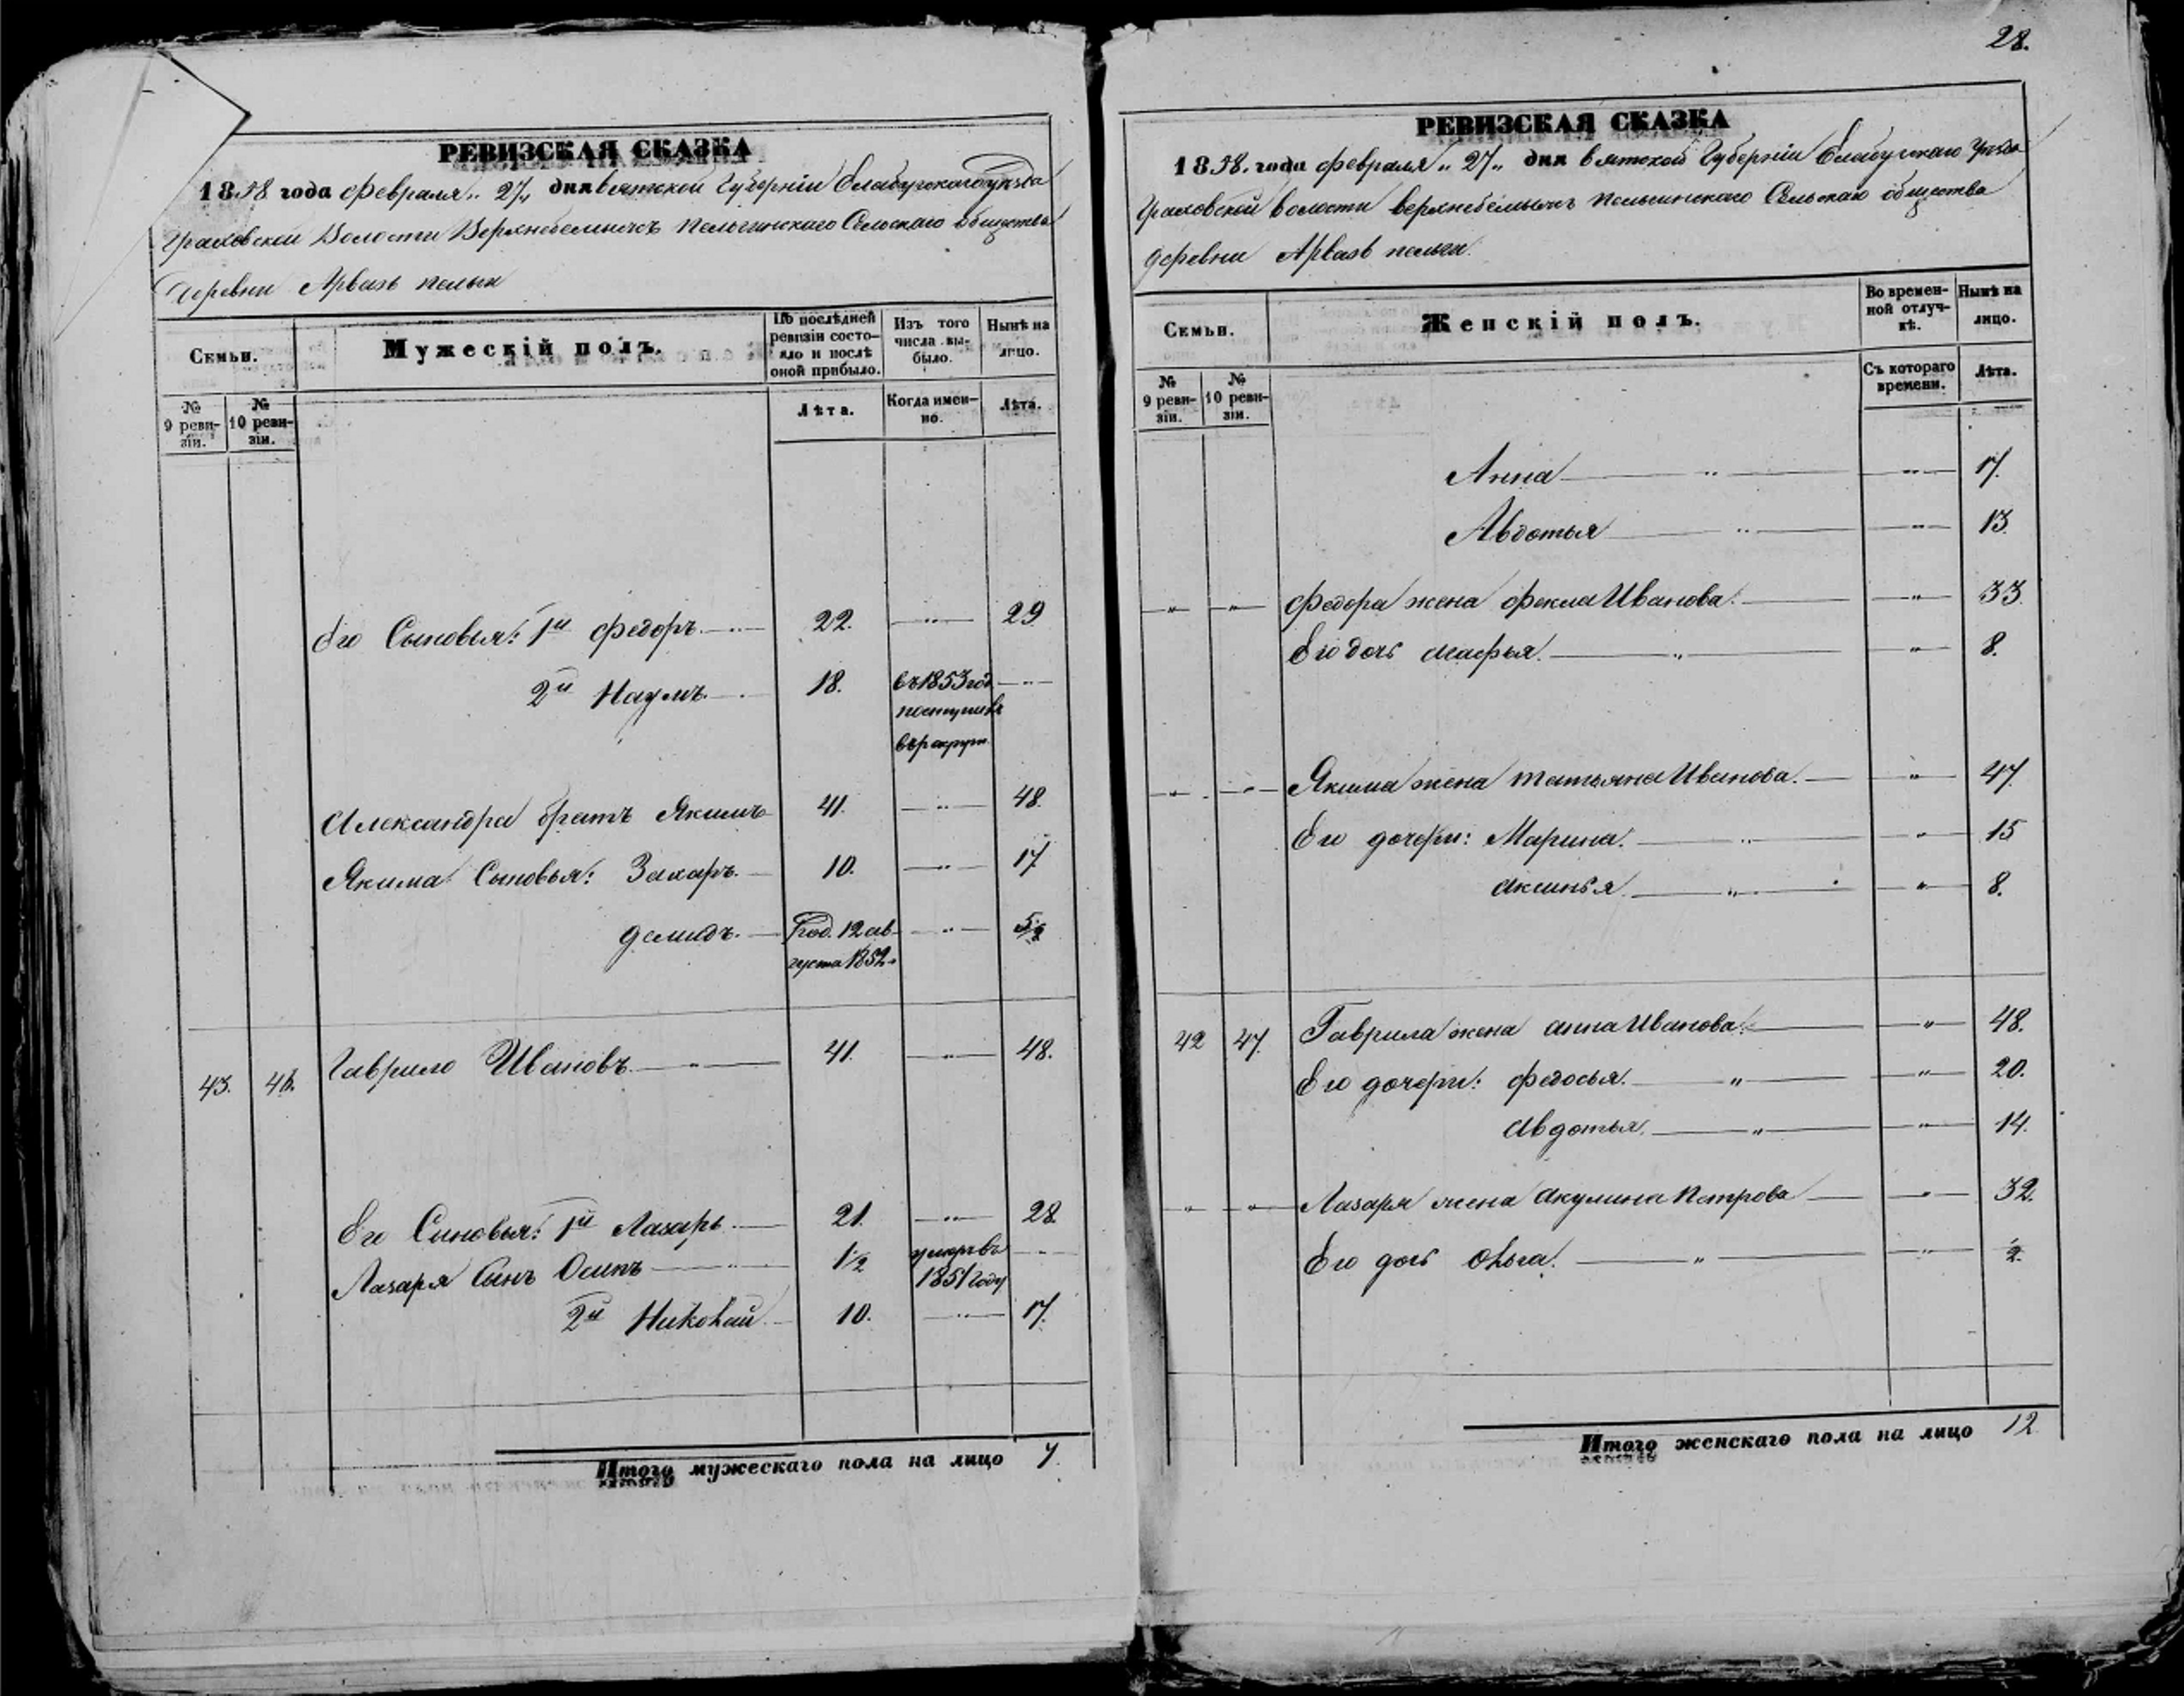 РЕВИЗСКАЯ СКАЗКА
1858 года февраля „ 27 „ дня вятской Губернiи Елабугскаго уѣзда
Граховской Волости Верхнебемыжъ пельгинскаго Сельскаго общества
Деревни Арвазь пельги
Семьи.
Мужескiй полъ.
По послѣдней ревизiи состо-
яло и послѣ оной прибыло.
Изъ того числа вы-
было.
Нынѣ на лицо.
№ 9 реви-
зiи.
№ 10 реви-
зiи.
Лѣта.
Когда имен-
но.
Лѣта.
Его Сыновья: 1й федоръ. 22. 29
2й Наумъ. 18. въ 1853 год
поступивъ
въ рекрут.
Александра братъ Якимъ 41. 48.
Якима Сыновья: Захаръ. 10. 17
демидъ. Род. 12 ав- 5½
густа 1852.
43. 46. Гаврило Ивановъ. 41. 48.
Его Сыновья: 1й Лазарь. 21. 28.
Лазаря Сынъ Осипъ 1½ умеръ въ
1851 году
2й Николай 10. 17.
Итого мужескаго пола на лицо 7
28.
РЕВИЗСКАЯ СКАЗКА
1858. года февраля „ 27 „ дня вятской Губернiи Елабугскаго уѣзда
Граховской волости верхнебемыжъ пельгинскаго Сельскаго общества
деревни Арвазь пельги.
Семьи.
Женскiй полъ.
Во времен-
ной отлуч-
кѣ.
Нынѣ на лицо.
№ 9 реви-
зiи.
№ 10 реви-
зiи.
Съ котораго времени.
Лѣта.
Анна „ „ 17.
Авдотья „ „ 13.
„ „ Федора жена фекла Иванова. „ 33
Его дочь марья. „ „ 8.
„ „ Якима жена татьяна Иванова. „ 47.
Его дочери: Марина. „ „ 15
аксинья. „ „ 8.
42 47. Гаврила жена анна Иванова. „ 48.
Его дочери: федосья. „ „ 20.
авдотья. „ „ 14.
„ „ Лазаря жена акулина петрова „ 32.
Его дочь ольга. „ „ 2.
Итого женскаго пола на лицо 12